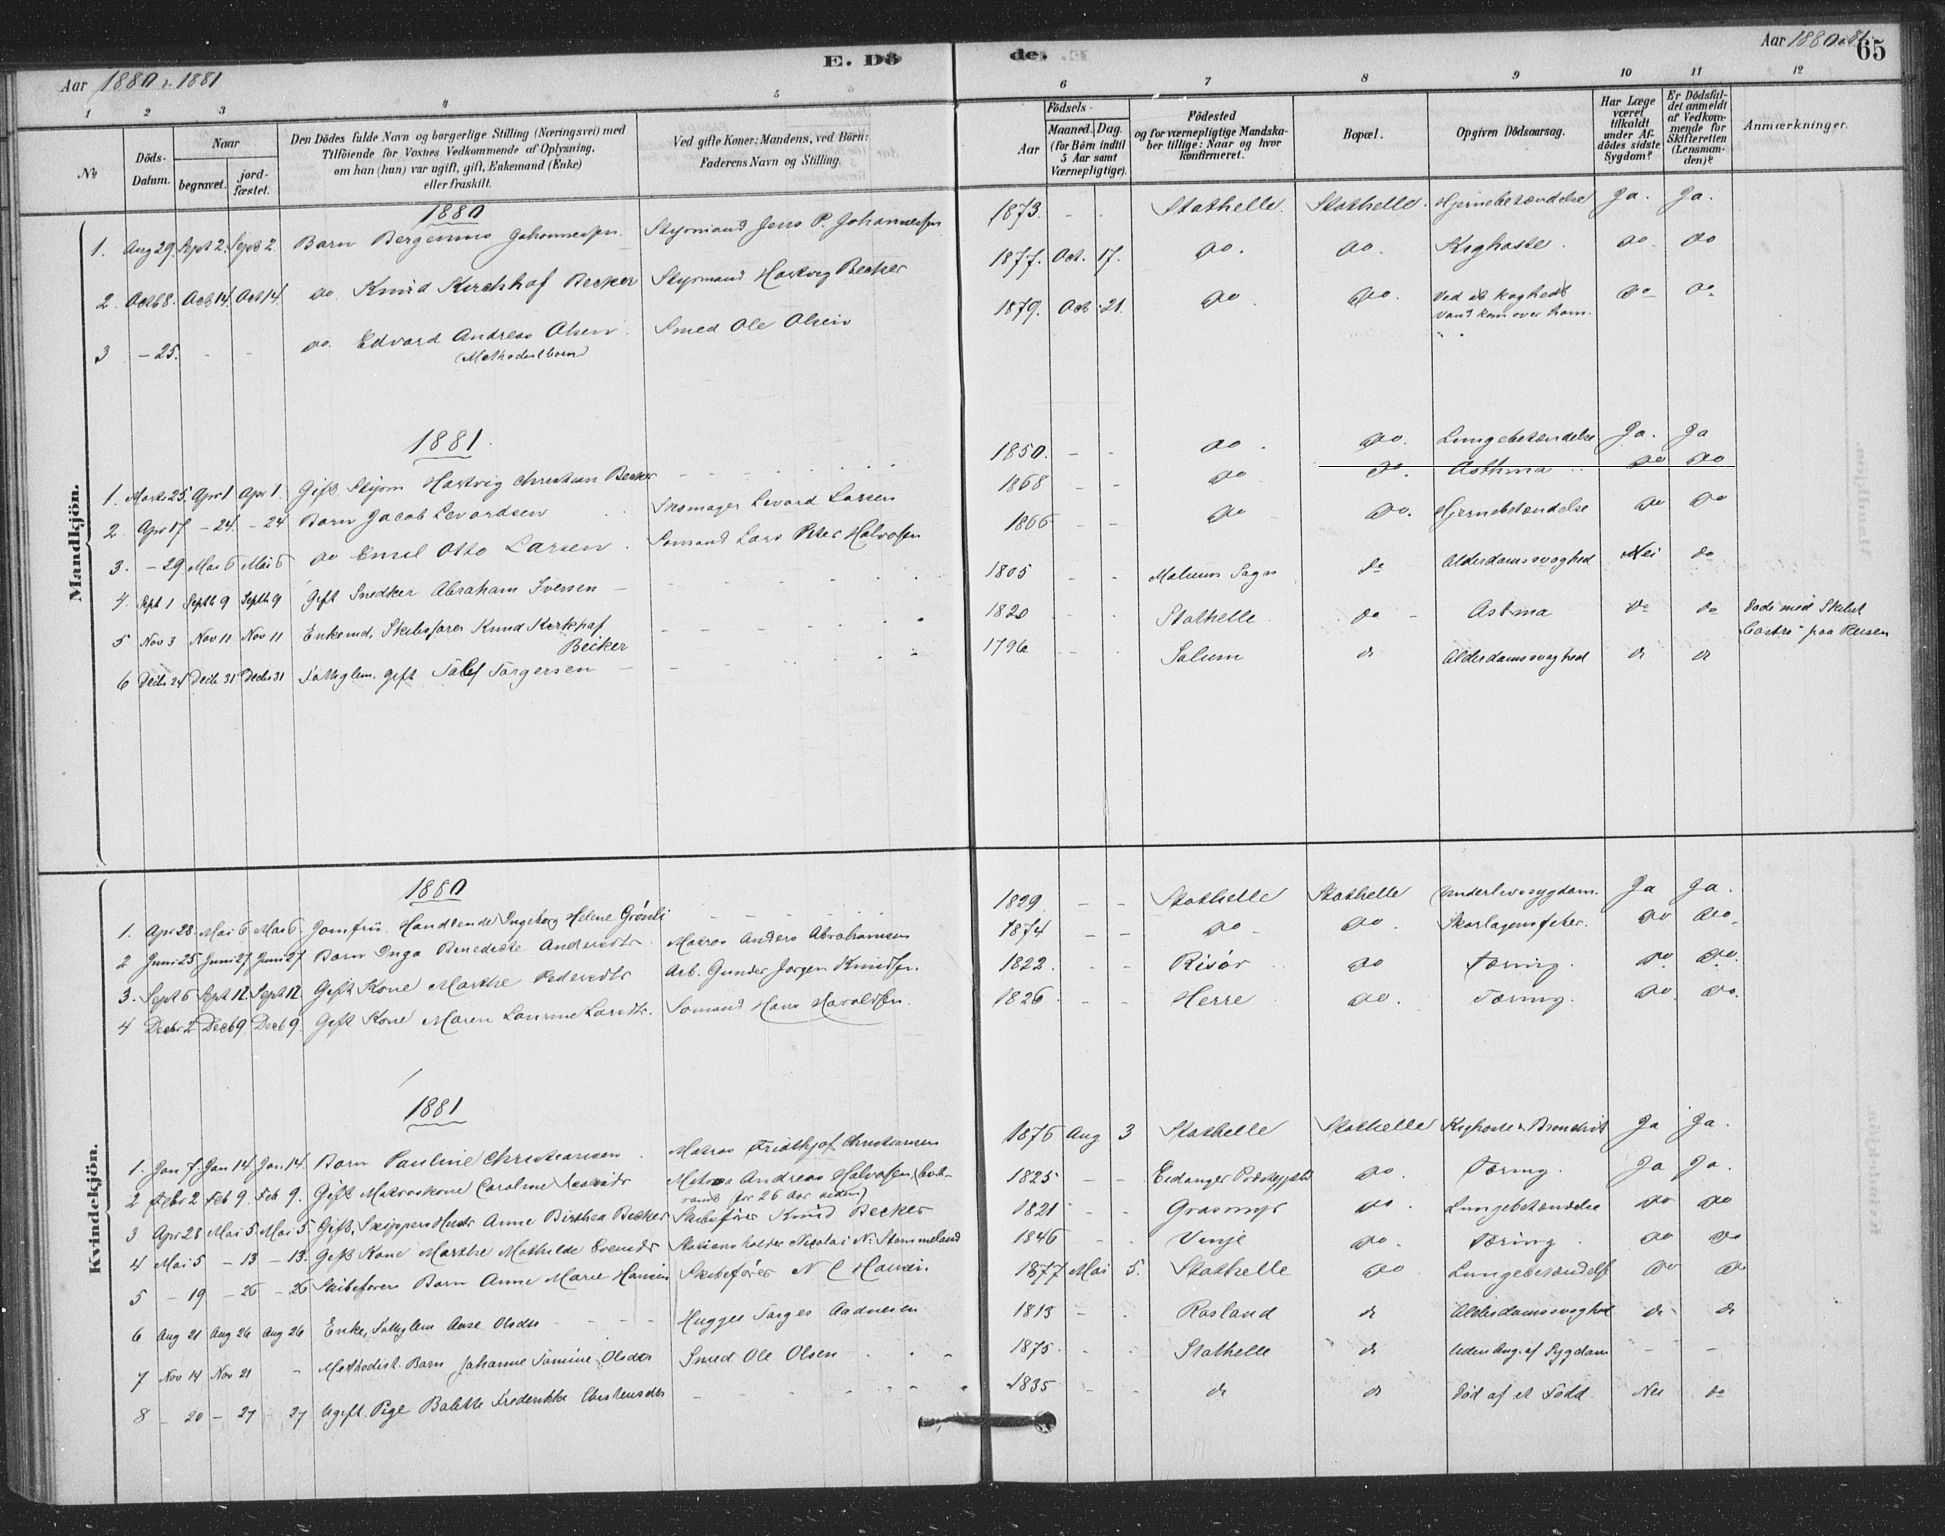 Aar 1880 & 1881
E. Dö
de.
Aar 1880 & 81.
65
1 2 3 4 5 6 7 8 9 10 11 12
No
Döds-Datum.
Naar
begravet.
jord-fæstet.
Den Dödes fulde Navn og borgerlige Stilling (Næringsvei) med
Tilföiende for Voxnes Vedkommende af Oplysning,
om han (hun) var ugift, gift, Enkemand (Enke)
eller fraskilt.
Ved gifte Koner: Mandens, ved Börn:
Faderens Navn og Stilling.
Födsels-
Aar
Maaned. Dag.
(for Börn indtil
5 Aar samt
Værnepligtige).
Födested
og for værnepligtige Mandska-
ber tillige: Naar og hvor
konfirmeret.
Bopæl.
Opgiven Dödsaarsag.
Har Læge
været
tilkaldt
under Af-
dödes sidste
Sygdom?
Er Dödsfal-
det anmeldt
af Vedkom-
mende for
Skifteretten
(Lensman-
den)?
Anmærkninger.
Mandkjön.
1880
1. Aug 29. Sept 2. Sept 2. Barn Bergenius Johannessen Styrmand Jens P. Johannessen 1873. - - Stathelle. Stathelle. Hjernebetændelse Ja. Ja.
2. Octb 8. Octb 14. Octb 14. do. Knud Kirchhof Becker Styrmand Hartvig Becker 1877. Oct. 17. do. do. Kighoste. do. do
3 - 25. - - do. Edvard Andreas Olsen Smed Ole Olsen 1879. Octb 21. do do. Ved at koghedt do do
(Methodistbarn) vand kom over ham.
1881.
1. Marts 25. Apr 1 Apr 1. Gift Styrm Hartvig Christian Becker - - 1850. - - do. do. Lungebetændelse Ja. Ja
2. Apr 17 - 24. - 24 Barn Jacob Levordsen Skomager Levord Larsen 1868 - - do do. Asthma do do
3. - 29 Mai 6 Mai 6 do Emil Otto Larsen Sømand Lars Peter Halvorsen 1866 - - do do. Hjernebetændelse do do
4. Sept 1 Septb 9 Septb 9 Gift Snedker Abraham Iversen - 1805 - - Melums Sogn do Alderdomssvaghed Nei do
5 Nov 3 Nov 11 Nov 11 Enkemd. Skibsfører Knud Kerkhof 1820 - - Stathelle do Astma do do Døde med Skibet
Becker "Castro" paa Reisen
6 Decb 24 Decb 31 Decb 31 Fattiglem. gift Tollef Torgersen - 1796 - - Solum do Alderdomssvaghed do do
Kvindekjön.
1880
1. Apr 28. Mai 6 Mai 6. Jomfru. Handlende Ingeborg Helene Grönli - - 1829. - - Stathelle Stathelle Underlivssygdom. Ja Ja.
2 Juni 25 Juni 27 Juni 27 Barn Inga Benedikte Andersdtr. Matros Anders Abrahamsen 1874 - - do - do. Skarlagensfeber. do do.
3. Sept 6 Sept 12. Sept 12. Gift Kone Marthe Pedersdtr Arb. Gunder Jørgen Knudsen. 1822. - - Risör do Tæring. do. do.
4 Decbr 2 Decb 9 Decb 9. Gift Kone Maren Laurine Larsdtr. Sømand Hans Haroldsen. 1826 - - Herre do. Tæring. do. do.
1881
1. Jan 7. Jan 14. Jan 14. Barn Pauline Christiansen. Matros Fridthjof Christiansen 1876 Aug 3 Stathelle Stathelle Kighoste & Ja Ja.
2 Febr 2 Feb 9. Feb 9. Gift Matroskone Caroline Matros Andreas Halvorsen, (bort- 1825 - - Eidanger Præstegjeld do. Tæring. Ja Ja.
rømt for 26 Aar siden)
3 Apr 28 Mai 5. Mai 5 Gift. Skippers Hustr Anne Birthea Becker Skibsfører Knud Becker 1821 - - Grasmyr do. Lungebetændelse do do
4 Mai 5 - 13 - 13. Gift Kone Marthe Mathilde Evensdtr Stationsholder Nicolai N. Stammeland 1846 - - Vinje do. Tæring. do do
5 - 19 - 26 - 26 Skibsførers Barn Anne Marie Hansen Skibsfører N C Hansen. 1877 Mai 5. Stathelle do Lungebetændelse do do
6 Aug 21 Aug 26 Aug 26 Enke, Fattiglem Aase Olsdtr - - - Hugger Torges Aadnesen 1813 - - Rosland do Alderdomssvaghed do do
7 Nov 14 Nov 21 - Methodist. Barn Johanne Tomine Olsdtr Smed Ole Olsen 1875. - - Stathelle do Uden Ang. af Sygdom - -
8 - 20 - 27 - 27 Ugift Pige Bolette Frederikke Christensdtr - - 1835 - - do do Død af et Fald Nei do